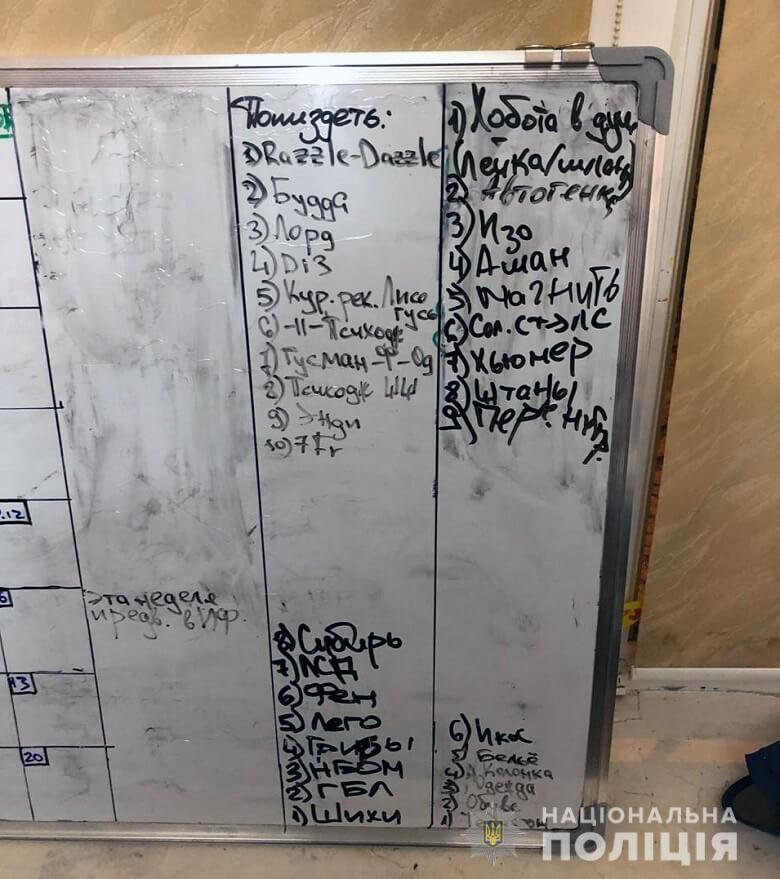 Попиздеть:
1) Razzle-Dazzle
2) Будда
3) Лорд
4) Diз
5) Кур. рек. Лисо
Гусь
6) -11- Психодк
7) Гусман-Ф-Од
8) Психодк
9) Энди
10) 7Гг
1) Хобота в душ
(лейка/шланг)
2) Автогенка
3) Изо
4) Аман
5) Магнить
6) Сол. СТ→ЛС
7) Хьюмер
8) Штаны
9) Пер.
.12
6
13
20
Эта неделя
предв. в ИФ.
8) Сибирь
7) ЛСД
6) Фен
5) Лего
4) Грибы
3) НБОМ
2) ГБЛ
1) Шихи
6) Икос
5) Бельё
4) Колонка
3) Одежда
2) Обувь
1)
НАЦІОНАЛЬНА
ПОЛІЦІЯ